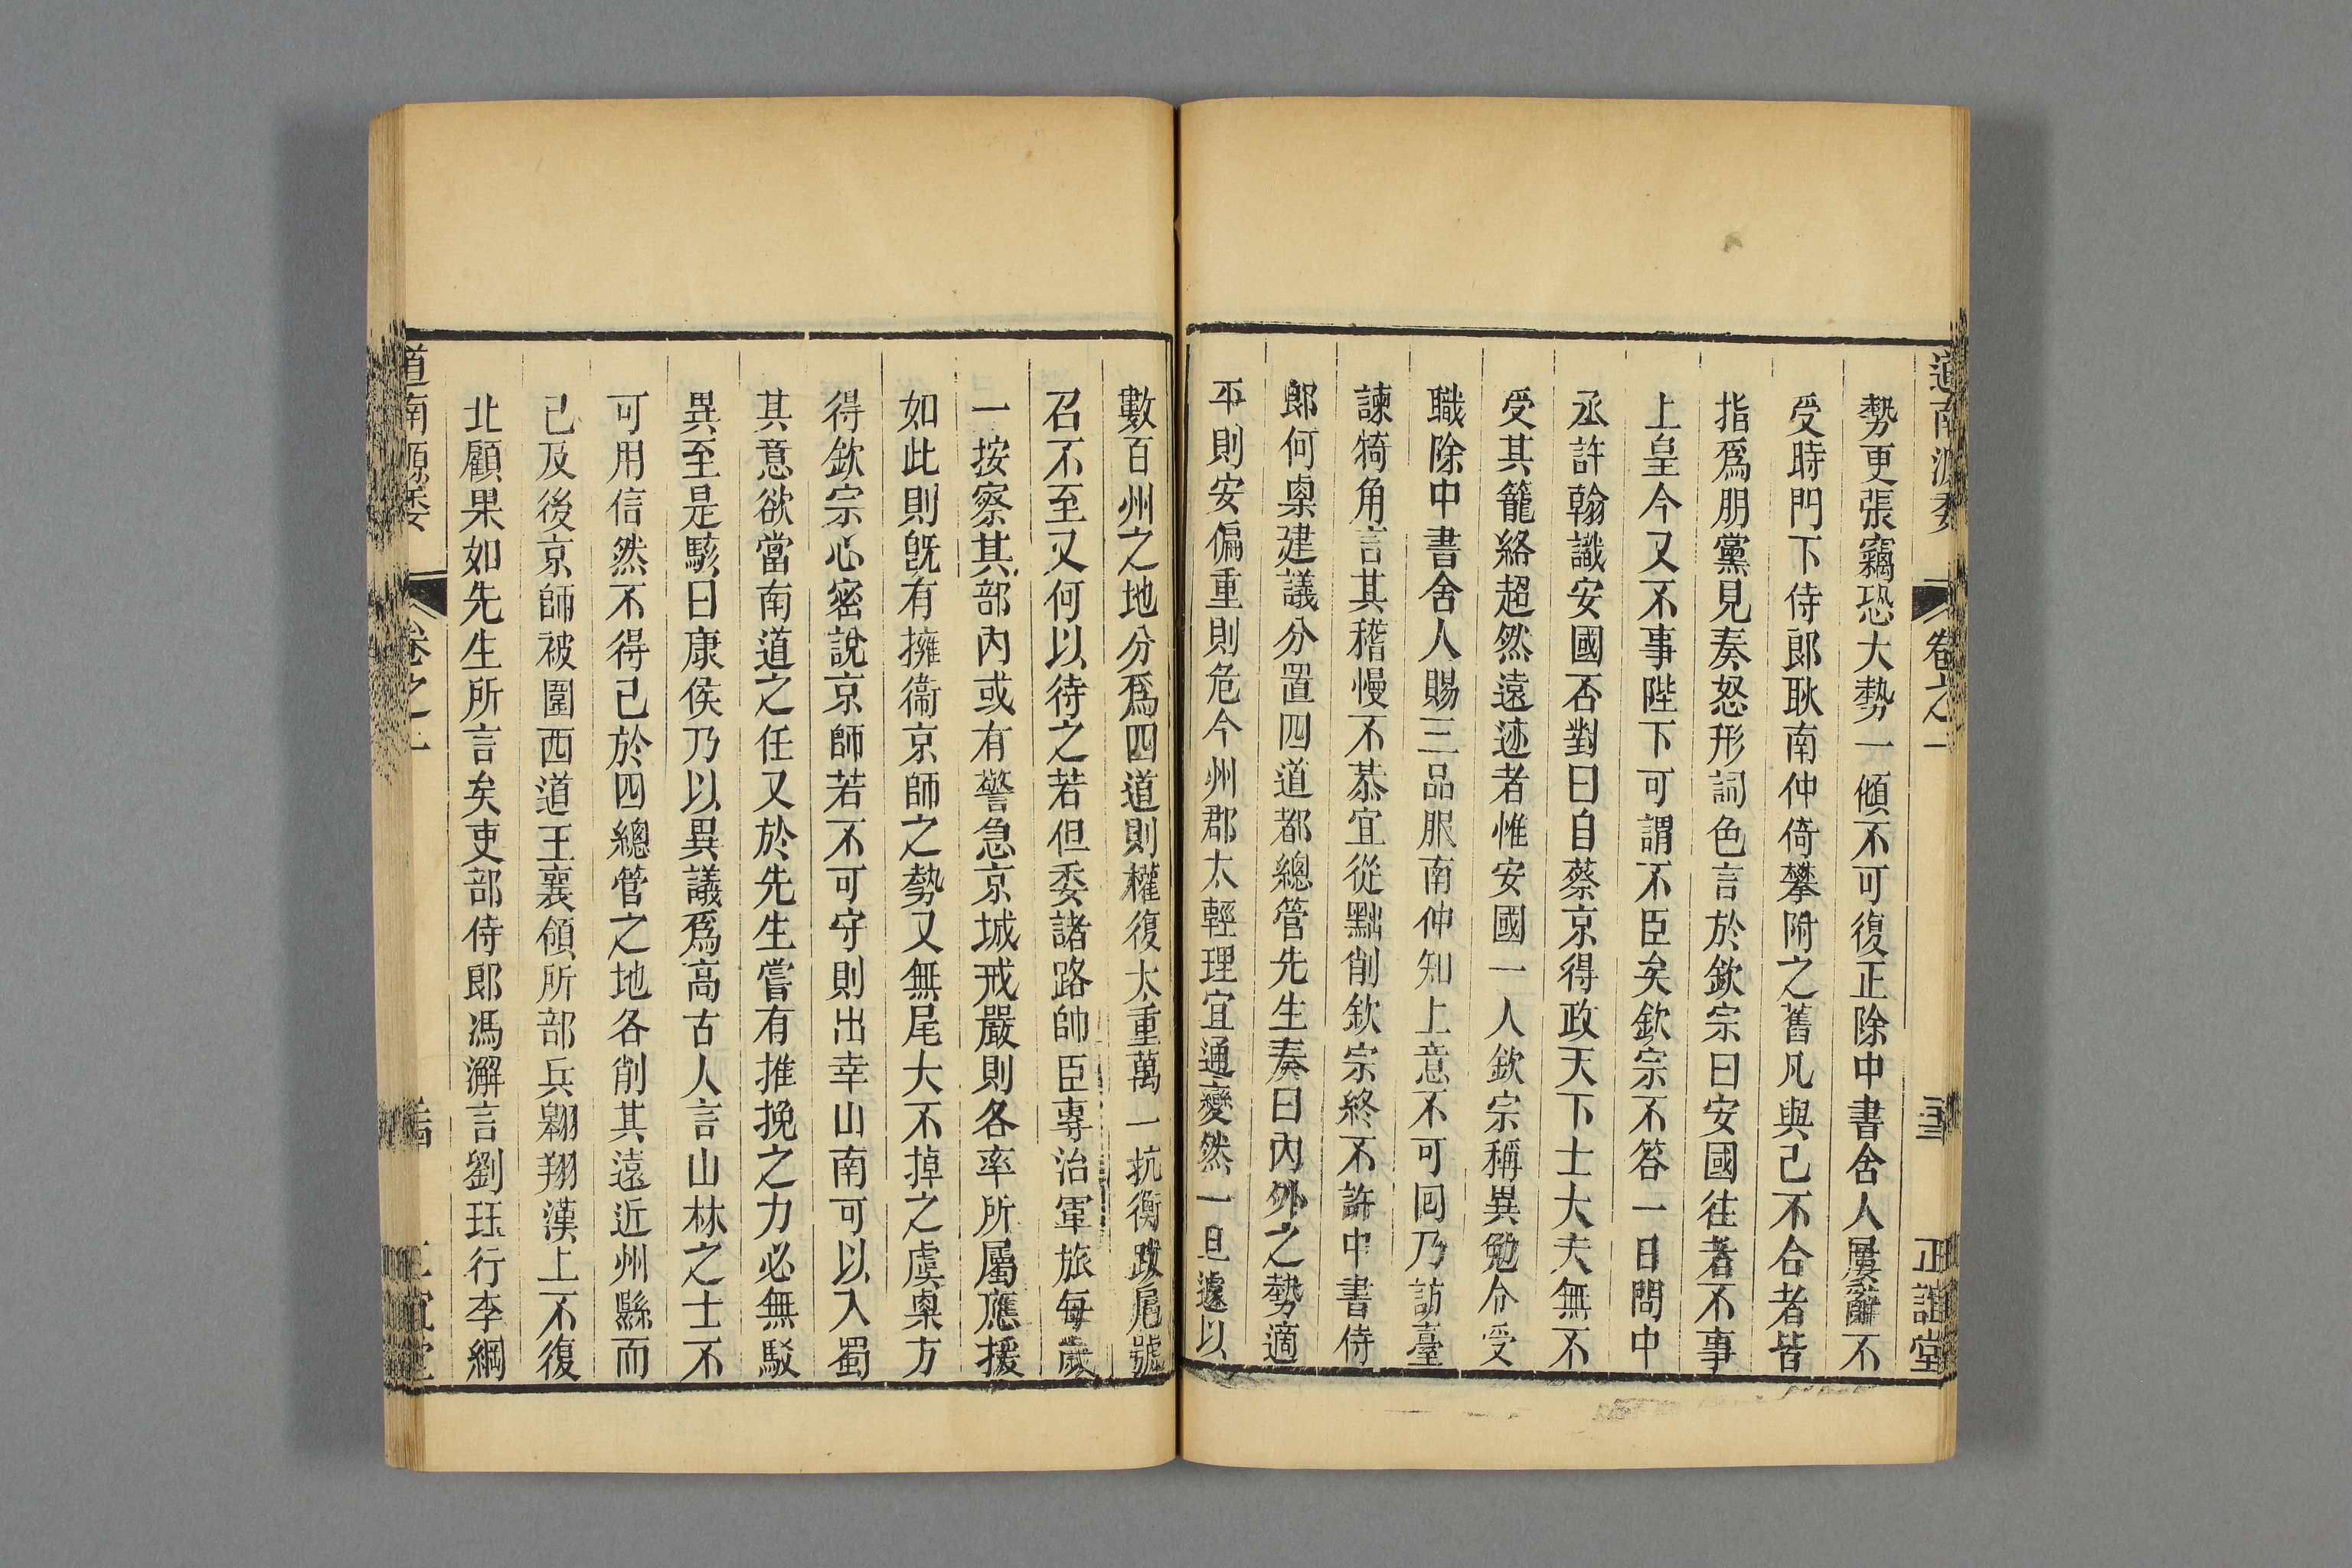 道南源委 卷之一 正誼堂
勢更張竊恐大勢一傾不可復正除中書舍人屢辭不
受時門下侍郎耿南仲倚攀附之舊凡與己不合者皆
指爲朋黨見奏怒形詞色言於欽宗曰安國往者不事
上皇今又不事陛下可謂不臣矣欽宗不答一日問中
丞許翰識安國否對曰自蔡京得政天下士大夫無不
受其籠絡超然遠迹者惟安國一人欽宗稱異勉令受
職除中書舍人賜三品服南仲知上意不可回乃訪臺
諫犄角言其稽慢不恭宜從黜削欽宗終不許中書侍
郎何㮚建議分置四道都總管先生奏曰內外之勢適
平則安偏重則危今州郡太輕理宜通變然一旦遽以
數百州之地分爲四道則權復太重萬一抗衡跋扈號
召不至又何以待之若但委諸路帥臣專治軍旅每歲
一按察其部內或有警急京城戒嚴則各率所屬應援
如此則旣有擁衞京師之勢又無尾大不掉之虞㮚方
得欽宗心密說京師若不可守則出幸山南可以入蜀
其意欲當南道之任又於先生嘗有推挽之力必無駁
異至是駭曰康侯乃以異議爲高古人言山林之士不
可用信然不得已於四總管之地各削其遠近州縣而
已及後京師被圍西道王襄領所部兵翱翔漢上不復
北顧果如先生所言矣吏部侍郎馮澥言劉珏行李綱
道南源委 卷之上